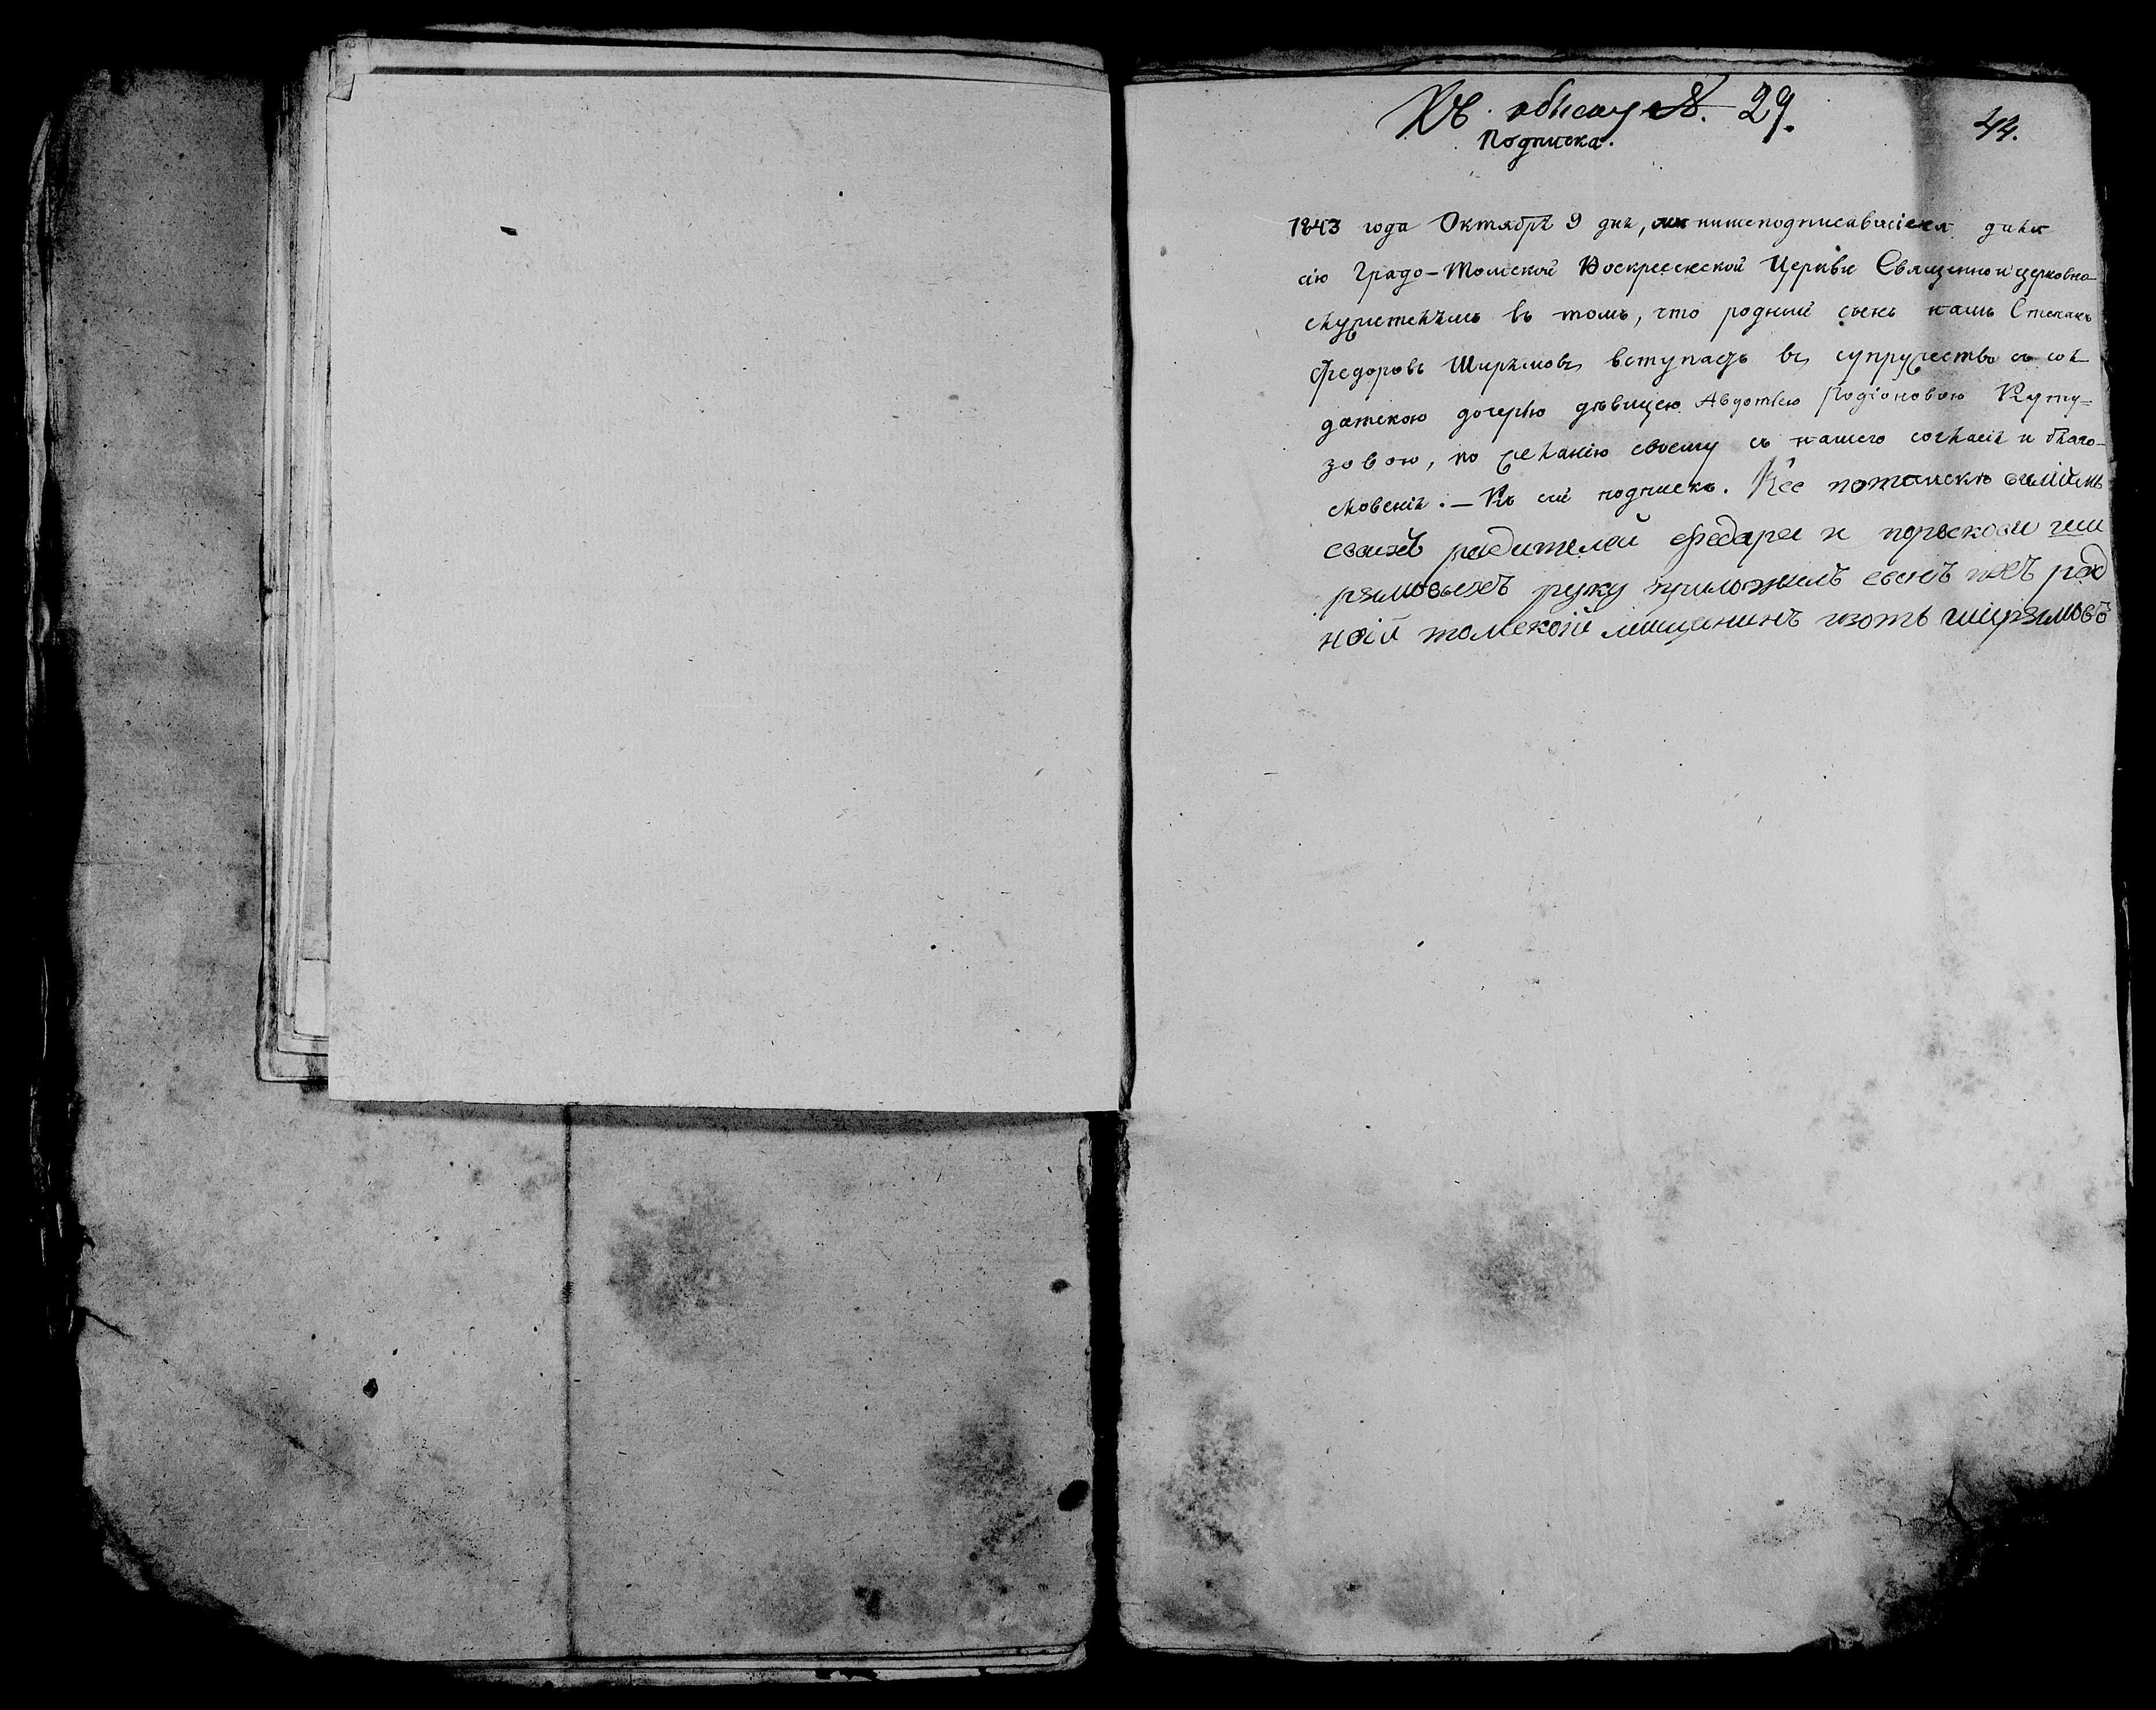 Къ обыску №. 29.
44.
Подписка.
1843 года Октября 9 дня, мы нижеподписавшіеся дали
сію Градо-Томской Воскресенской Церкви Священно и церковно-
служителямъ въ томъ, что родный сынъ нашъ Степанъ
Федоровъ Ширямовъ вступаетъ въ супружество съ сол
датскою дочерью дѣвицею Авдотьею Родіоновою Куту=
зовою, по желанію своему съ нашего согласія и благо-
словенія. — Къ сей подпискѣ. Кее потпискѣ
сваихъ радителей федара и пораскови ши
рямовыхъ руку приложилъ сынъ ихъ род
ной томской мещининъ изотъ ширямовъ